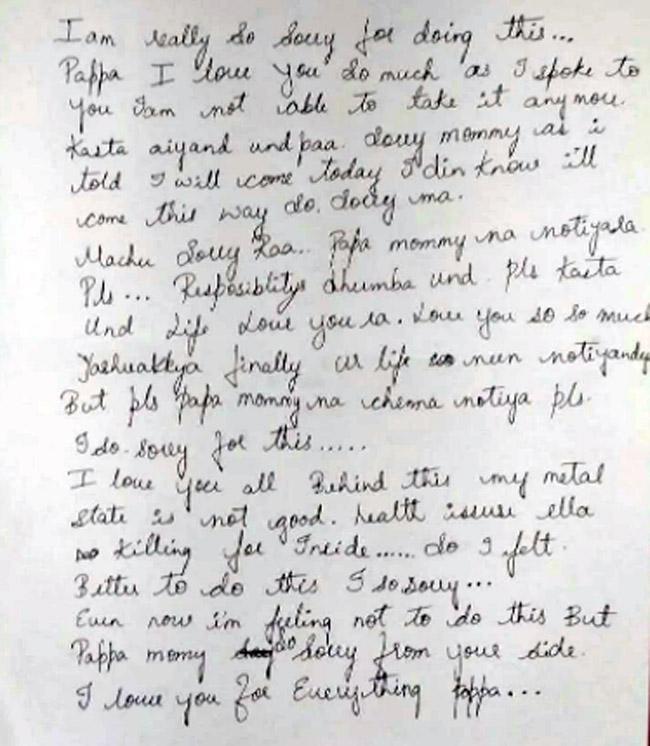 I am really so sorry for doing this...
Pappa I love you so much as I spoke to
you Iam not able to take it anymore.
Kasta aiyand undpaa. Sorry mommy as i
told I will come today I din know ill
come this way so. Sorry ma.
Machu Sorry Raa.. Papa mommy na notiyala.
Pls... Resposiblitys dhumba und. Pls Kasta
Und Life Love you ra. Love you so so much
Yashuakkya finally ur life neen notiyandu
But pls papa mommy na chenna notiya pls.
I so. sorry for this.....
I love you all Behind this my metal
state is not good. health issuse ella
killing for Inside...... So I felt.
Better to do this I so sorry...
Even now i'm feeling not to do this But
Pappa momy so Sorry from your side.
I love you for Everything pappa...